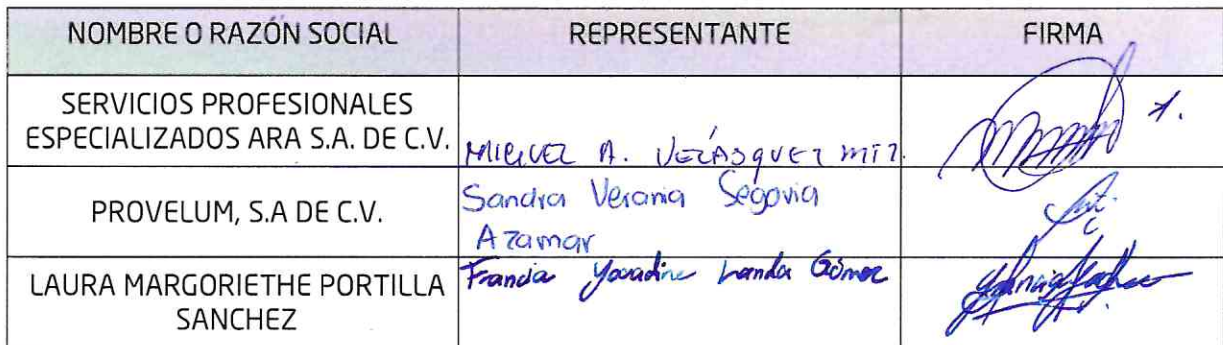 NOMBRE O RAZÓN SOCIAL REPRESENTANTE FIRMA
SERVICIOS PROFESIONALES
ESPECIALIZADOS ARA S.A. DE C.V.
MIGUEL A. VELÁSQUEZ MTZ.
PROVELUM, S.A DE C.V.
Sandra Verania Segovia
Azamar
LAURA MARGORIETHE PORTILLA
SANCHEZ
Francia Landa Gómez